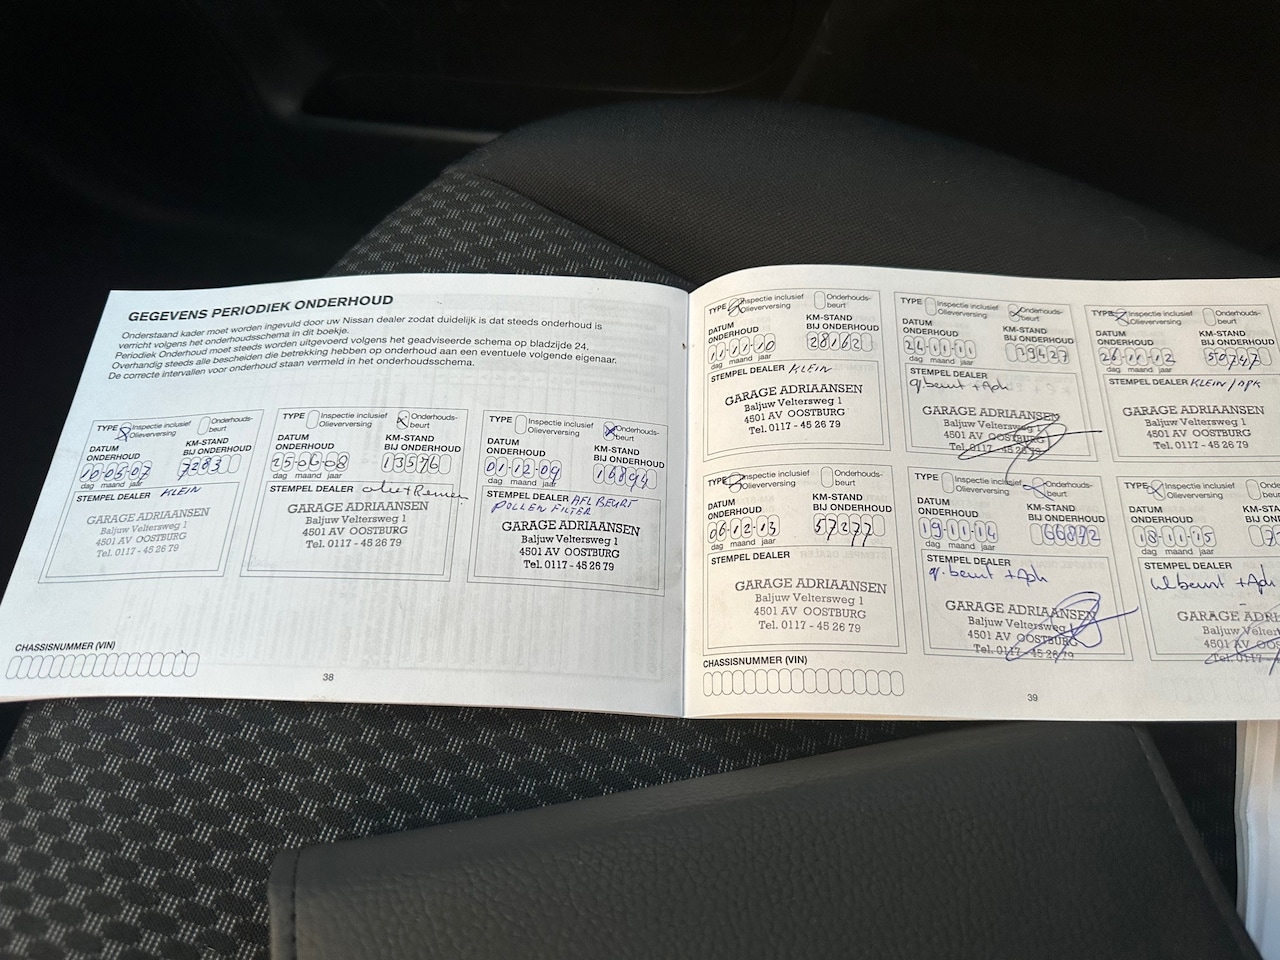 GEGEVENS PERIODIEK ONDERHOUD
Onderstaand kader moet worden ingevuld door uw Nissan dealer zodat duidelijk is dat steeds onderhoud is
verricht volgens het onderhoudsschema in dit boekje.
Periodiek Onderhoud moet steeds worden uitgevoerd volgens het geadviseerde schema op bladzijde 24.
Overhandig steeds alle bescheiden die betrekking hebben op onderhoud aan een eventuele volgende eigenaar.
De correcte intervallen voor onderhoud staan vermeld in het onderhoudsschema.
TYPE Inspectie inclusief Olieverversing Onderhouds-beurt
DATUM ONDERHOUD KM-STAND BIJ ONDERHOUD
10-05-07 7283
dag maand jaar
STEMPEL DEALER KLEIN
GARAGE ADRIAANSEN
Baljuw Veltersweg 1
4501 AV OOSTBURG
Tel. 0117 - 45 26 79
TYPE Inspectie inclusief Olieverversing Onderhouds-beurt
DATUM ONDERHOUD KM-STAND BIJ ONDERHOUD
25-06-08 13576
dag maand jaar
STEMPEL DEALER
GARAGE ADRIAANSEN
Baljuw Veltersweg 1
4501 AV OOSTBURG
Tel. 0117 - 45 26 79
TYPE Inspectie inclusief Olieverversing Onderhouds-beurt
DATUM ONDERHOUD KM-STAND BIJ ONDERHOUD
01-12-09 16894
dag maand jaar
STEMPEL DEALER AFL BEURT
POLLEN FILTER
GARAGE ADRIAANSEN
Baljuw Veltersweg 1
4501 AV OOSTBURG
Tel. 0117 - 45 26 79
CHASSISNUMMER (VIN)
38
TYPE Inspectie inclusief Olieverversing Onderhouds-beurt
DATUM ONDERHOUD KM-STAND BIJ ONDERHOUD
11-12-10 28162
dag maand jaar
STEMPEL DEALER KLEIN
GARAGE ADRIAANSEN
Baljuw Veltersweg 1
4501 AV OOSTBURG
Tel. 0117 - 45 26 79
TYPE Inspectie inclusief Olieverversing Onderhouds-beurt
DATUM ONDERHOUD KM-STAND BIJ ONDERHOUD
24-11-11 39427
dag maand jaar
STEMPEL DEALER
gr. beurt + Apk
GARAGE ADRIAANSEN
Baljuw Veltersweg 1
4501 AV OOSTBURG
Tel. 0117 - 45 26 79
TYPE Inspectie inclusief Olieverversing Onderhouds-beurt
DATUM ONDERHOUD KM-STAND BIJ ONDERHOUD
26-11-12 50747
dag maand jaar
STEMPEL DEALER KLEIN / APK
GARAGE ADRIAANSEN
Baljuw Veltersweg 1
4501 AV OOSTBURG
Tel. 0117 - 45 26 79
TYPE Inspectie inclusief Olieverversing Onderhouds-beurt
DATUM ONDERHOUD KM-STAND BIJ ONDERHOUD
06-12-13 57277
dag maand jaar
STEMPEL DEALER
GARAGE ADRIAANSEN
Baljuw Veltersweg 1
4501 AV OOSTBURG
Tel. 0117 - 45 26 79
TYPE Inspectie inclusief Olieverversing Onderhouds-beurt
DATUM ONDERHOUD KM-STAND BIJ ONDERHOUD
19-11-14 66872
dag maand jaar
STEMPEL DEALER
gr. beurt + Apk
GARAGE ADRIAANSEN
Baljuw Veltersweg 1
4501 AV OOSTBURG
Tel. 0117 - 45 26 79
TYPE Inspectie inclusief Olieverversing Onde
DATUM ONDERHOUD KM-ST BIJ ON
18-11-15
dag maand jaar
STEMPEL DEALER
kl beurt + Apk
GARAGE ADRI
Baljuw Velter
4501 AV OO
Tel. 0117
CHASSISNUMMER (VIN)
39